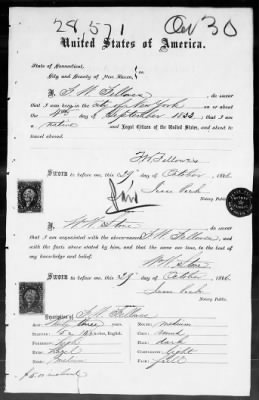 28,571 Oct 30
United States of America.
State of Connecticut,
City and County of New Haven, } ss
I, F. W. Fellowes, do swear
that I was born in the City of New York on or about
the day of September 1833, that I am
a native and Loyal Citizen of the United States, and about to
travel abroad.
F. W. Fellowes
Sworn to before me, this 29 day of October, 1866
Notary Public.
I, do swear
that I am acquainted with the above-named F. W. Fellowes, and
with the facts above stated by him, and that the same are true, to the best of
my knowledge and belief.
Sworn to before me, this 29 day of October, 1866
Notary Public.
Description of F. W. Fellowes
Age, Thirty three years. Mouth, medium
Stature, 5 feet inches, English. Chin,
Forehead, high Hair, dark
Eyes, Hazel Complexion, light
Nose, Face, full
$5.00 enclosed